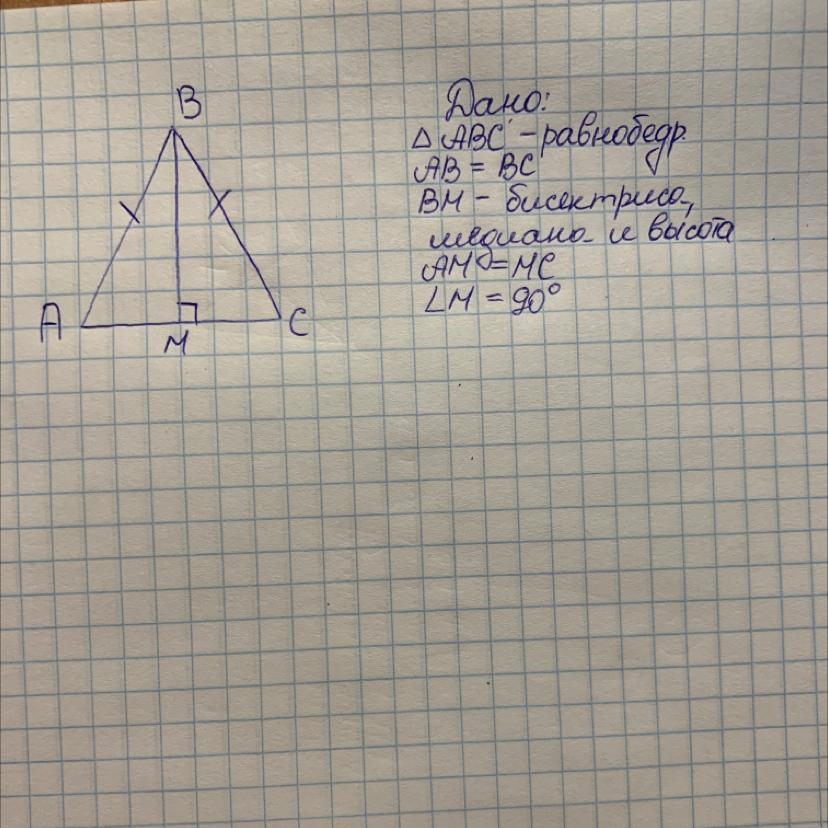 B
A
M
C
Дано:
△ ABC - равнобедр.
AB = BC
BM - бисектриса,
медиана и высота
AM = MC
∠M = 90°